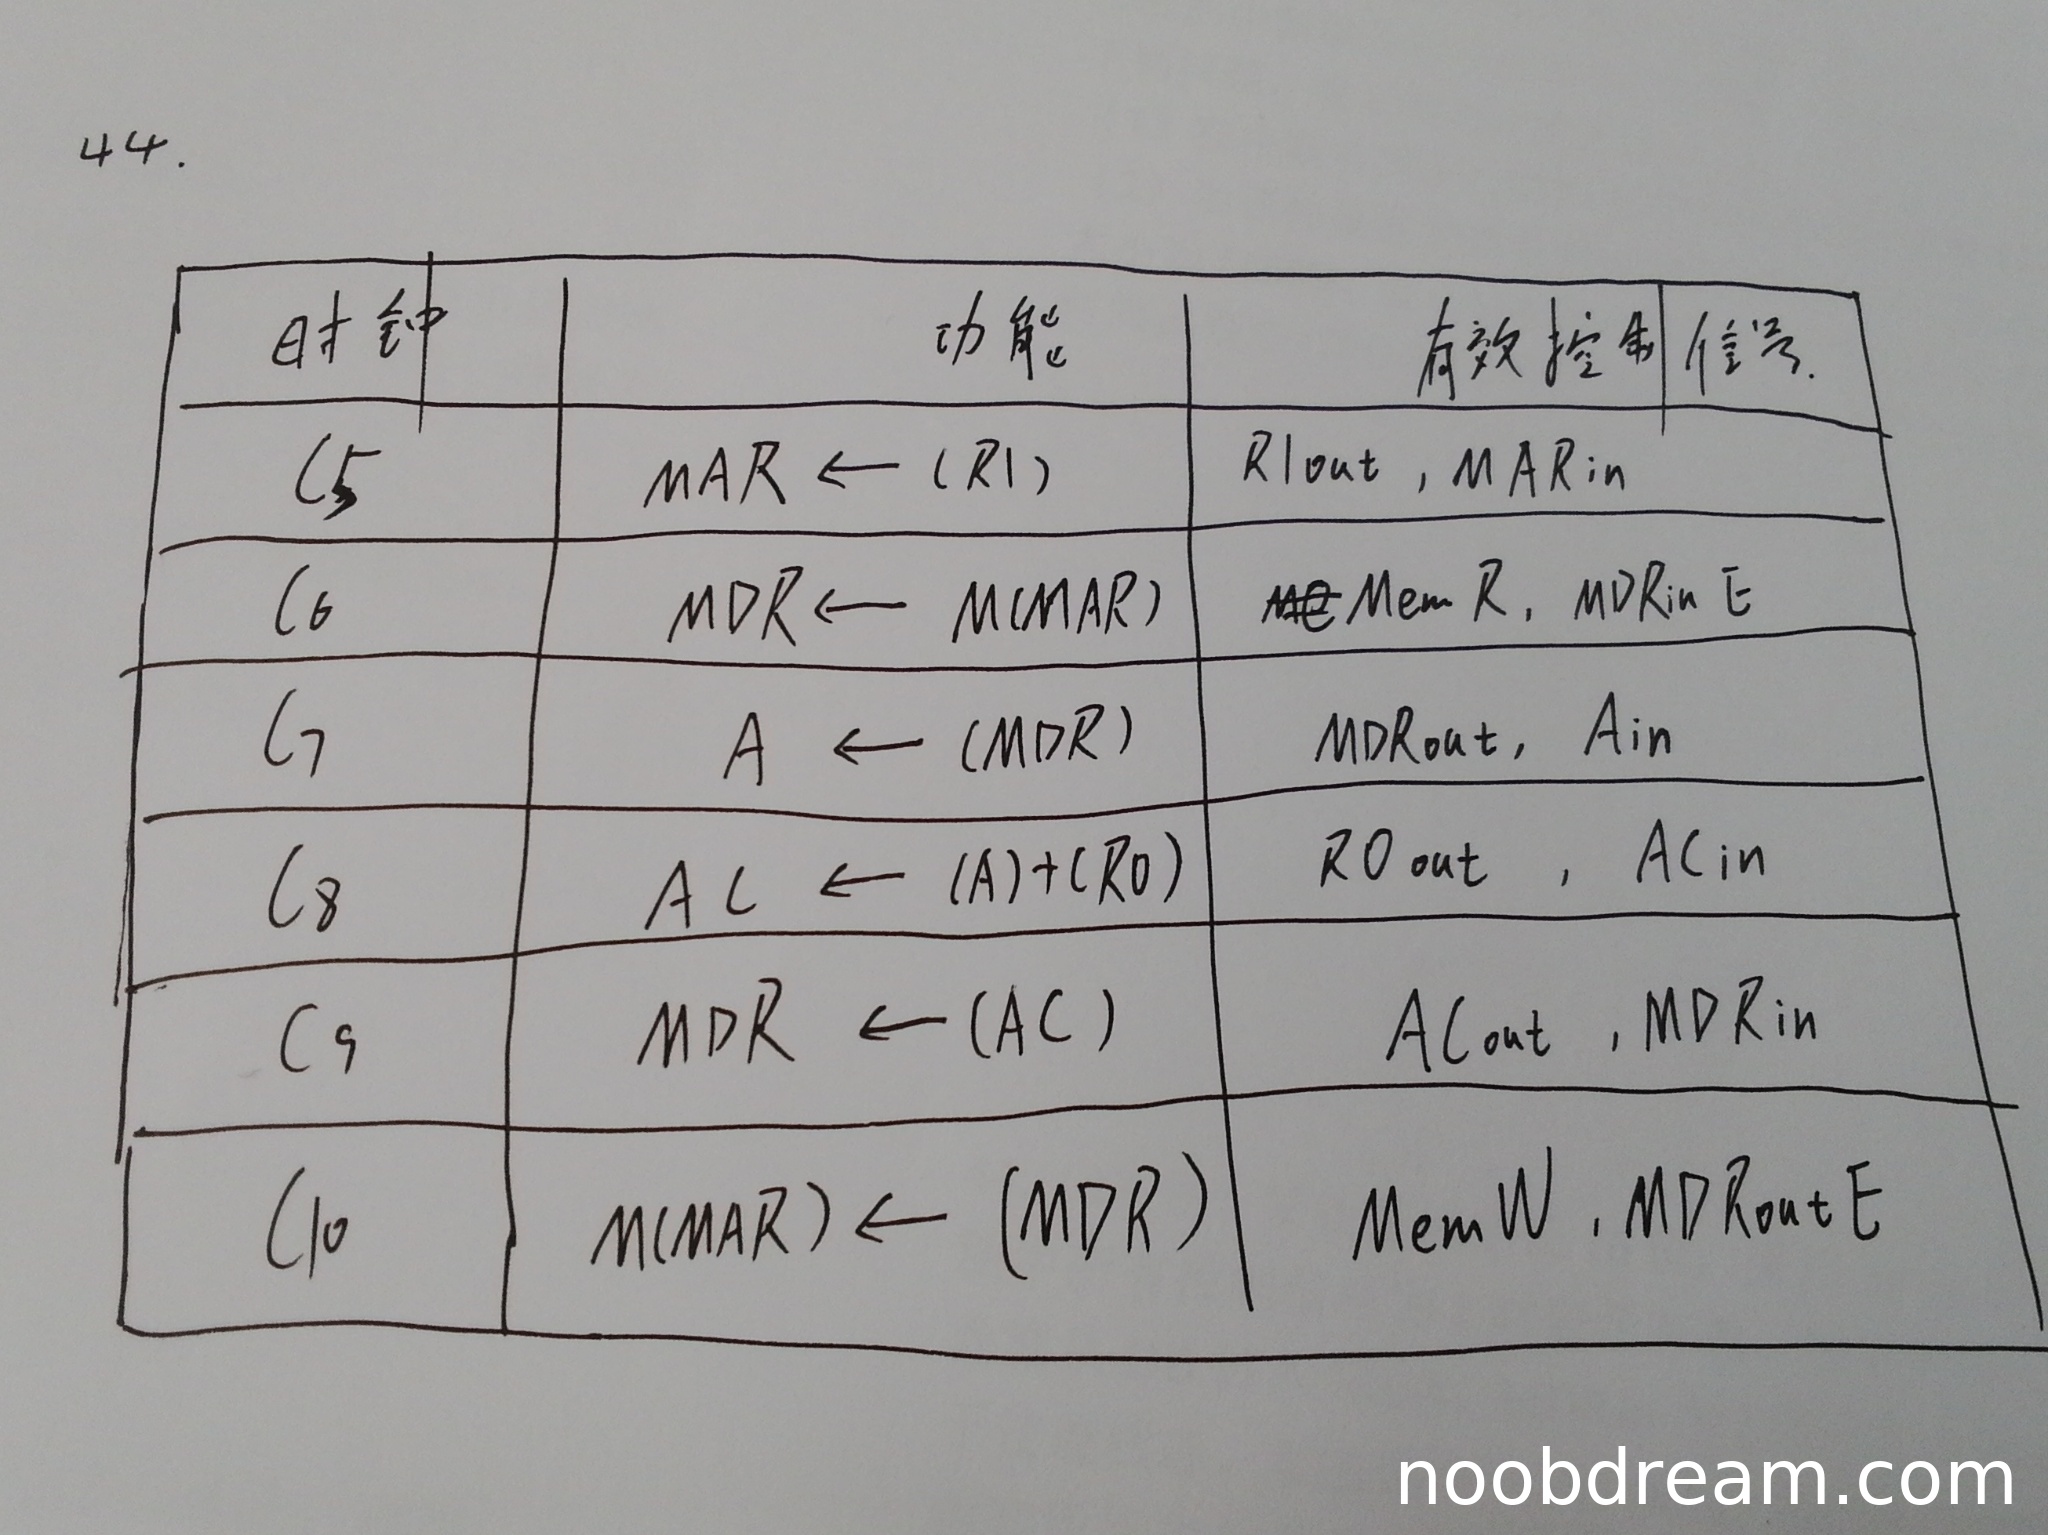 44.
时钟 功能 有效控制信号.
C5 MAR ← (R1) R1out , MARin
C6 MDR ← M(MAR) MemR, MDRinE
C7 A ← (MDR) MDRout, Ain
C8 AC ← (A)+(R0) R0out , ACin
C9 MDR ← (AC) ACout , MDRin
C10 M(MAR) ← (MDR) MemW , MDRoutE
noobdream.com